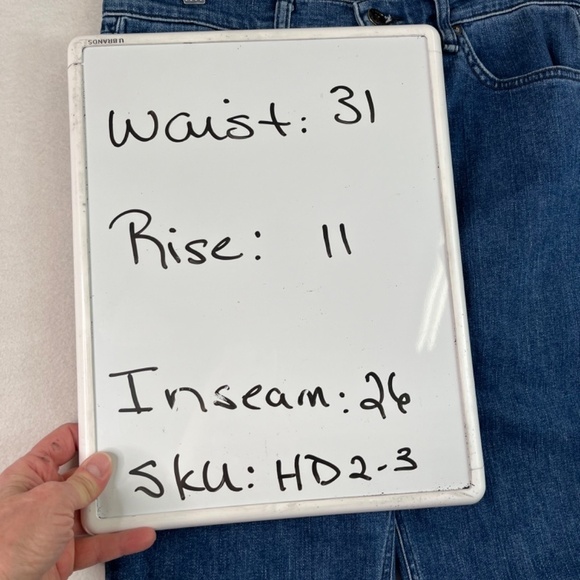 U BRANDS
Waist: 31
Rise: 11
Inseam: 26
SKU: HD2-3